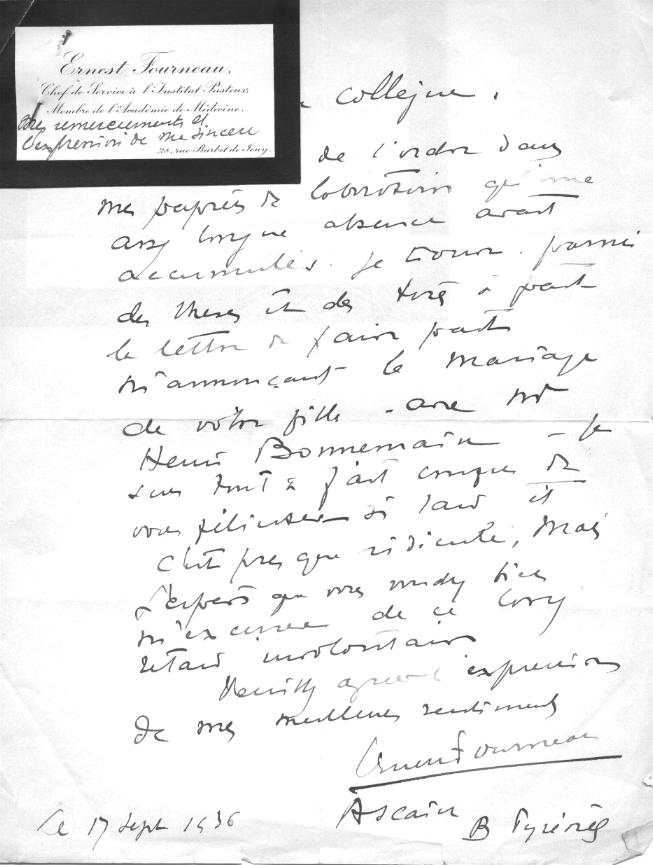 Ernest Fourneau,
Chef de Service à l'Institut Pasteur,
Membre de l'Académie de Médecine.
remerciements et
l'expression de ma sincère
28, rue Barbet de Jouy.
collègue,
de l'ordre dans
mes papiers de laboratoire qu'une
assez longue absence avait
accumulés. je trouve parmi
des theses et des tirés à part
la lettre de faire part
m'annonçant le mariage
de votre fille avec Mr
Henri Bonnemain - Je
suis tout à fait confus de
vous féliciter si tard et
c'est presque ridicule, mais
J'espère que vous voudrez bien
m'excuser de ce long
retard involontaire
Veuillez agréer l'expression
de mes meilleurs sentiments
Ernest Fourneau
Ascain
B Pyrénées
Le 17 Sept 1936